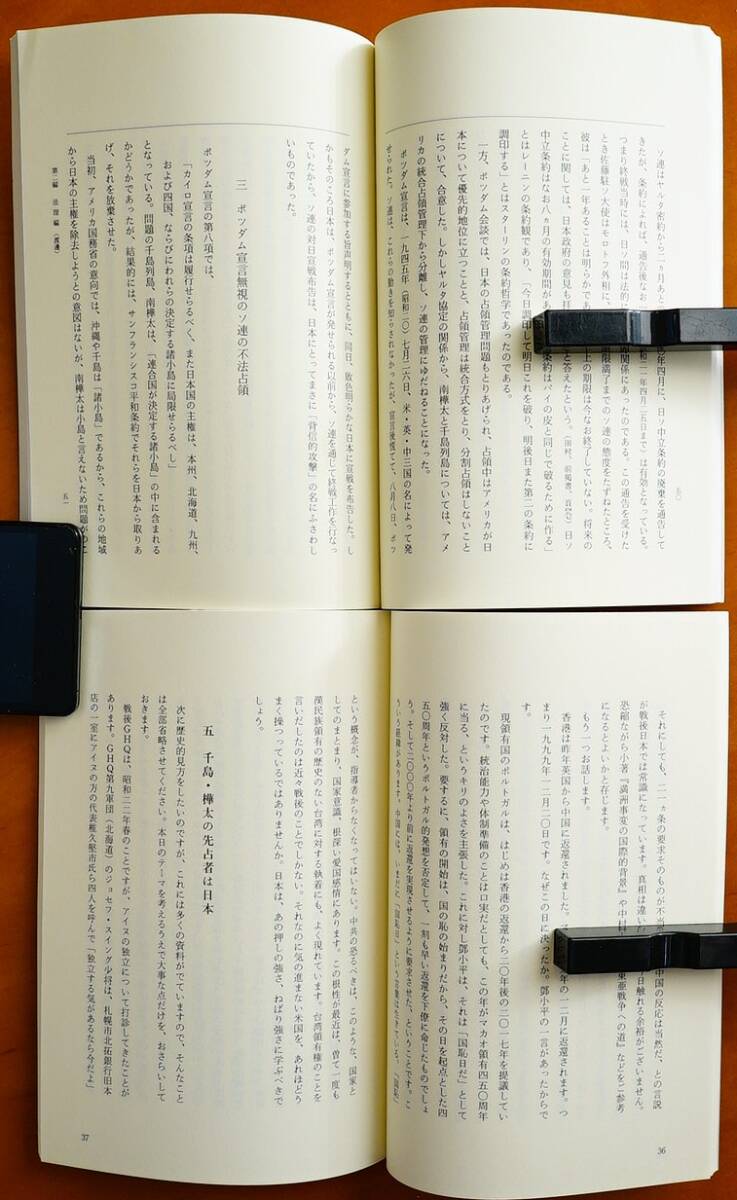 ソ連はヤルタ密約から二ヵ月あと
年四月に、日ソ中立条約の廃棄を通告して
きたが、条約によれば、通告後なお
和二一年四月二五日まで）は有効となっている。
つまり終戦当時には、日ソ間は法的
関係にあったのである。この通告を受けた
とき佐藤駐ソ大使はモロトフ外相に、
限満了までのソ連の態度をたずねたところ、
彼は「あと一年あることは明らかであ
上の期限は今なお終了していない。将来の
ことに関しては、日本政府の意見も
と答えたという。
日ソ
中立条約はなお八ヵ月の有効期間が
条約はパイの皮と同じで破るために作る」
とはレーニンの条約観であり、「今日調印して明日これを破り、明後日また第二の条約に
調印する」とはスターリンの条約哲学であったのである。
一方、ポツダム会談では、日本の占領管理問題もとりあげられ、占領中はアメリカが日
本について優先的地位に立つことと、占領管理は統合方式をとり、分割占領はしないこと
について、合意した。しかしヤルタ協定の関係から、南樺太と千島列島については、アメ
リカの統合占領管理下から分離し、ソ連の管理にゆだねることになった。
ポツダム宣言は、一九四五年（昭和二〇）七月二六日、米・英・中三国の名によって発
せられた。ソ連は、これらの動きを知らされなかったが、宣言後慌てて、八月八日、ポツ
ダム宣言に参加する旨声明するとともに、同日、敗色明らかな日本に宣戦を布告した。し
かもそのころ日本は、ポツダム宣言が発せられる以前から、ソ連を通じて終戦工作を行なっ
ていたから、ソ連の対日宣戦布告は、日本にとってまさに「背信的攻撃」の名にふさわし
いものであった。
三　ポツダム宣言無視のソ連の不法占領
ポツダム宣言の第八項では、
「カイロ宣言の条項は履行せらるべく、また日本国の主権は、本州、北海道、九州、
および四国、ならびにわれらの決定する諸小島に局限せらるべし」
となっている。問題の千島列島、南樺太は、「連合国が決定する諸小島」の中に含まれる
かどうかであったが、結果的には、サンフランシスコ平和条約でそれらを日本から取りあ
げ、それを放棄させた。
当初、アメリカ国務省の意向では、沖縄や千島は「諸小島」であるから、これらの地域
から日本の主権を除去しようとの意図はないが、南樺太は小島と言えないため問題が
第二編　法理編（渡邊）
五一
それにしても、二一ヵ条の要求そのものが不当
中国の反応は当然だ、との言説
が戦後日本では常識になっています。真相は違い
日触れる余裕がございません。
恐縮ながら小著『満洲事変の国際的背景』や中村
東亜戦争への道』などをご参考
になるとよいかと存じます。
もう一つお話します。
香港は昨年英国から中国に返還されました。
年の一二月に返還されます。つ
まり一九九九年一二月二〇日です。なぜこの日に決ったか。鄧小平の一言があったからで
す。
現領有国のポルトガルは、はじめは香港の返還から二〇年後の二〇一七年を提議してい
たのです。統治能力や体制準備のことは口実だとしても、この年がマカオ領有四五〇周年
に当る、というキリのよさを主張した。これに対し鄧小平は、それは「国恥日だ」として
強く反対した。要するに、領有の開始は、国の恥の始まりだから、その日を起点とした四
五〇周年というポルトガル的発想を否定して、一刻も早い返還を下僚に命じたものでしょ
う。そして二〇〇〇年より前に返還を実現させるように要求させた、ということです。こ
ういう経緯があります。中国には、いまだに「国恥日」という言葉は生きている。「国恥」
36
という概念が、指導者からなくなってはいない。中共の恐るべきは、このような、国家と
してのまとまり、国家意識、根深い愛国感情にあります。この根性が最近は、曽て一度も
漢民族領有の歴史のない台湾に対する執着にも、よく現れています。台湾領有権のことを
言いだしたのは近々戦後のことでしかない。それなのに気の進まない米国を、あれほどう
まく操つっているではありませんか。日本は、あの押しの強さ、ねばり強さに学ぶべきで
しょう。
五　千島・樺太の先占者は日本
次に歴史的見方をしたいのですが、これには多くの資料がでていますので、そんなこと
は全部省略させてください。本日のテーマを考えるうえで大事な点だけを、おさらいして
おきます。
戦後ＧＨＱは、昭和二二年春のことですが、アイヌの独立について打診してきたことが
あります。ＧＨＱ第九軍団（北海道）のジョセフ・スイング少将は、札幌市北拓銀行旧本
店の一室にアイヌの方の代表椎久堅市氏ら四人を呼んで「独立する気があるなら今だよ」
37